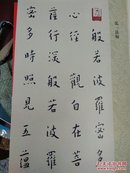 般若波羅蜜多
心經觀自在菩
薩行深般若波羅
蜜多時照見五蘊